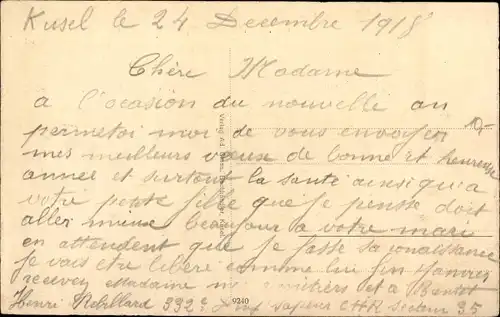 Kusel le 24 Decembre 1918
Chère Madame
a l'ocasion du nouvelle an
permetoi moi de vous envoyer
mes meilleurs vœux de bonne et heureuse
année et surtout la santé ainsi qu'a
votre petite fille que je pensse doit
aller mieux beaujour a votre mari
en attendent que je fasse sa conaissance
je vais etre libéré comme lui fin Janvier
recevez Madame et a Bientot
Henri Rebillard 332e sapeur secteur 35
9240